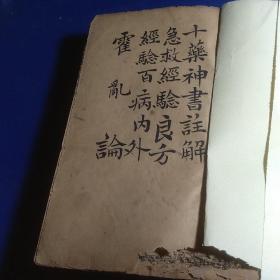 十藥神書註解
急救經驗良方
經驗百病內外
霍亂論